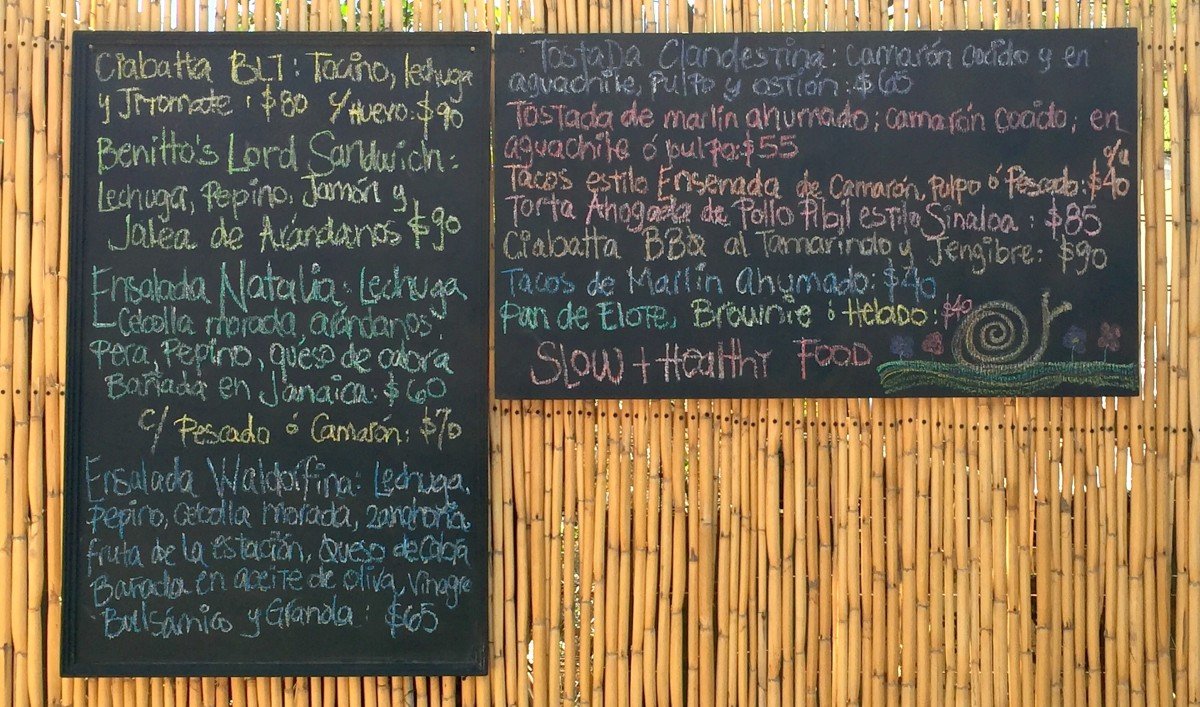 Ciabatta BLT: Tocino, lechuga
y Jitomate: $80 c/Huevo: $90
Benitto's Lord Sandwich:
Lechuga, Pepino, Jamón y
Jalea de Arándanos $90
Ensalada Natalia: Lechuga
Cebolla morada, arándanos,
Pera, Pepino, queso de cabra
Bañada en Jamaica: $60
c/ Pescado ó Camarón: $70
Ensalada Waldorfina: Lechuga,
Pepino, Cebolla morada, zanahoria,
fruta de la estación, Queso de Cabra
Bañada en aceite de oliva, Vinagre
Bulsámico y Granola: $65
Tostada Clandestina: camarón cocido y en
aguachile, Pulpo y ostión: $65
Tostada de marlín ahumado; camarón cocido; en
aguachile ó pulpo: $55
Tacos estilo Ensenada de Camarón, Pulpo ó Pescado: $40 c/u
Torta Ahogada de Pollo Pibil estilo Sinaloa: $85
Ciabatta BBQ al Tamarindo y Jengibre: $90
Tacos de Marlín Ahumado: $40
Pan de Elote, Brownie ó Helado: $40
Slow + Healthy Food